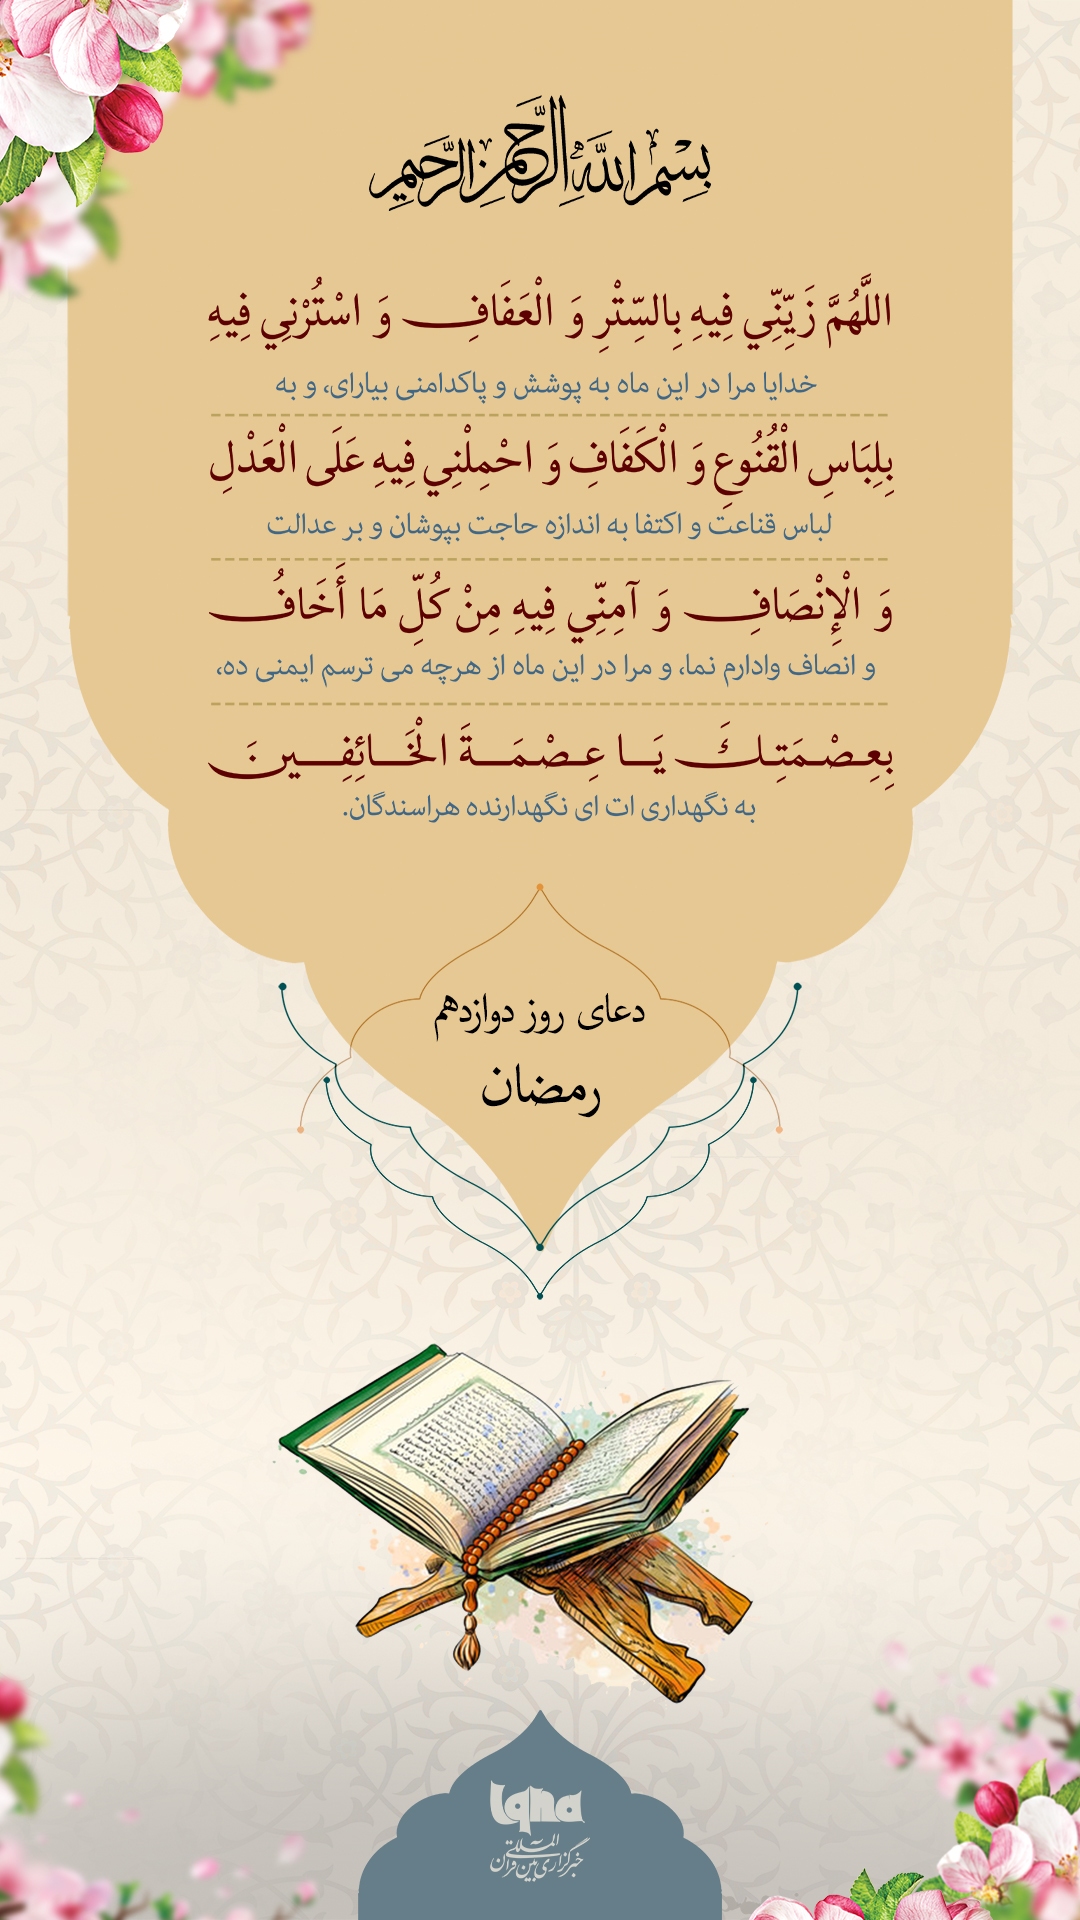 بِسْمِ اللَّهِ الرَّحْمنِ الرَّحيمِ
اللَّهُمَّ زَيِّنِّي فِيهِ بِالسِّتْرِ وَ الْعَفَافِ وَ اسْتُرْنِي فِيهِ
خدایا مرا در این ماه به پوشش و پاکدامنی بیارای، و به
بِلِبَاسِ الْقُنُوعِ وَ الْكَفَافِ وَ احْمِلْنِي فِيهِ عَلَى الْعَدْلِ
لباس قناعت و اکتفا به اندازه حاجت بپوشان و بر عدالت
وَ الْإِنْصَافِ وَ آمِنِّي فِيهِ مِنْ كُلِّ مَا أَخَافُ
و انصاف وادارم نما، و مرا در این ماه از هرچه می ترسم ایمنی ده،
بِعِصْمَتِكَ يَا عِصْمَةَ الْخَائِفِينَ
به نگهداری ات ای نگهدارنده هراسندگان.
دعای روز دوازدهم
رمضان
iqna
خبرگزاری بین المللی قرآن